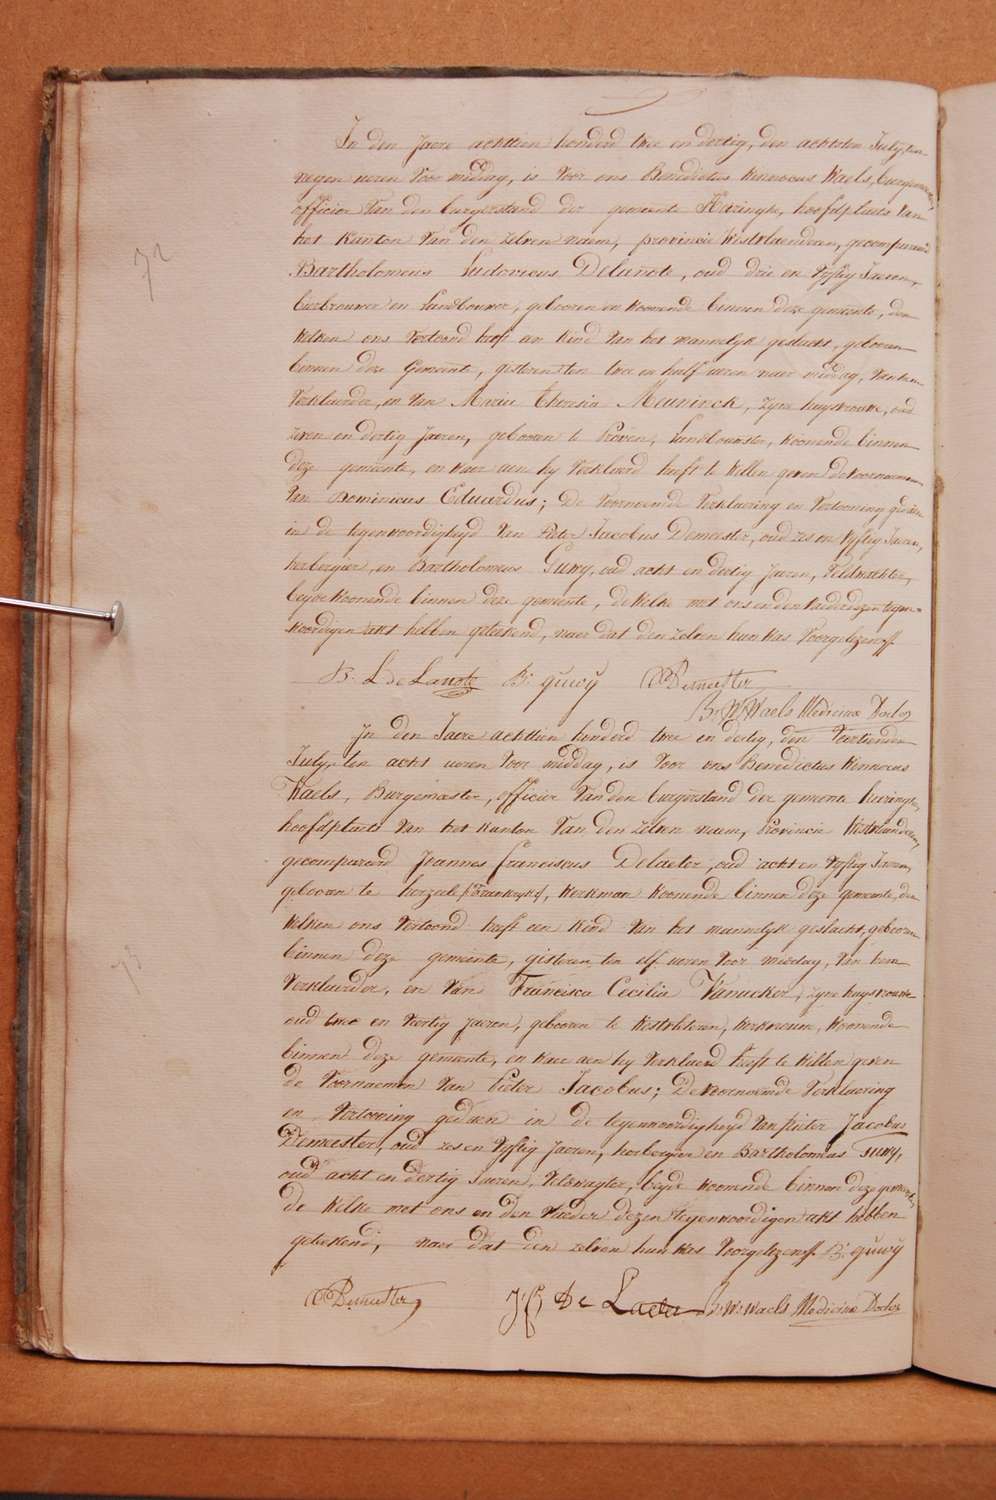 In den Jaere achttien honderd twee en dertig, den achtsten July, ten
negen uren Voor middag, is Voor ons Benedictus Winnocus Waels, burgemeester,
officier Van den burgerstand der gemeente Haringhe, hoofdplaets Van
het Kanton Van den zelven naem, provincie Westvlaenderen, gecompareerd
72
Bartholomeus Ludovicus Delanote, oud drie en Vyftig Jaeren,
bierbrouwer en Landbouwer, gebooren en Woonende binnen deze gemeente, den
Welken ons Vertoond heeft een Kind Van het mannelyk geslacht, gebooren
binnen deze Gemeente, gisteren ten twee en half uren naer middag, Van hem
Verklaerder, en Van Marie Theresia Meuninck, zyne huysvrouwe, oud
zeven en dertig Jaeren, gebooren te Proven, Landbouwster, Woonende binnen
deze gemeente, en Waer aen hy Verklaerd heeft te Willen geven de Voornaemen
Van Dominicus Eduardus; De Voornoemde Verklaering en Vertooning gedaen
in de tegenwoordigheyd Van Pieter Jacobus Demeester, oud zes en Vyftig Jaeren,
herbergier, en Bartholomeus Guwy, oud acht en dertig Jaeren, Veldwachter,
beyde Woonende binnen deze gemeente, de Welke met ons en den Vaeder dezen tegen-
woordigen akt hebben geteekend, naer dat den zelven hun Was Voorgelezen.
B. L. De Lanote B: guwy PDemeester
B: W: Waels Medicinæ Doctor
In den Jaere achttien honderd twee en dertig, den Veertienden
July, ten acht uren Voor middag, is Voor ons Benedictus Winnocus
Waels, Burgemeester, officier Van den burgerstand der gemeente haringhe,
hoofdplaets Van het Kanton Van den zelven naem, Provincie Westvlaenderen,
gecompareerd Joannes Franciscus Delaeter, oud acht en Vyftig Jaeren,
gebooren te herzeele (Frankryke), Werkman Woonende binnen deze gemeente, den
Welken ons Vertoond heeft een Kind Van het mannelyk geslacht, gebooren
73
binnen deze gemeente, gisteren, ten elf uren Voor middag, Van hem
Verklaerder, en Van Francisca Cecilia Vanacker, zyne huysvrouwe
oud twee en Veertig Jaeren, gebooren te Westvleteren, Werkvrouwe, Woonende
binnen deze gemeente, en Waer aen hy Verklaerd heeft te Willen geven
de Voornaemen Van Pieter Jacobus; De Voornoemde Verklaering
en Vertooning gedaen in de tegenwoordigheyd Van pieter Jacobus
Demeester, oud zes en Vyftig Jaeren, herbergier en Bartholomeus Guwy,
oud acht en dertig Jaeren, Veldwagter, beyde Woonende binnen deze gemeente,
de Welke met ons en den Vaeder dezen tegenwoordigen akt hebben
geteekend, naer dat den zelven hun Was Voorgelezen. B: guwy
PDemeester J: F De Laeter B: W: Waels Medicinæ Doctor